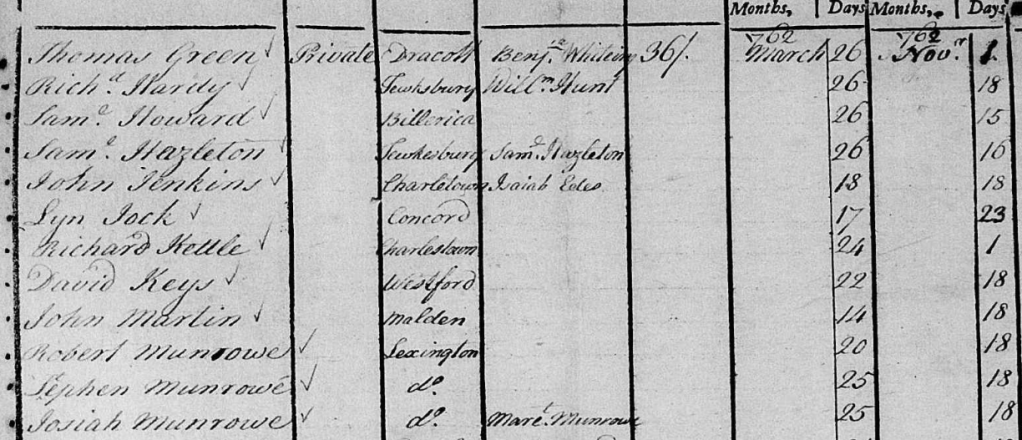 Months, Days Months, Days
1762 1762
Thomas Green Private Dracott Benjn. Whiteing 36/. March 26 Novr. 1
Richd. Hardy Tewksbury Willm. Hunt 26 18
Samll. Howard Billerica 26 15
Samll. Hazleton Tewkesbury Samll. Hazleton 26 16
John Jenkins Charlestown Isaiah Edes 18 18
Lyn Jock Concord 17 23
Richard Kettle Charlestown 24 1
David Keys Westford 22 18
John Martin Malden 14 18
Robert Munrowe Lexington 20 18
Stephen Munrowe do. 25 18
Josiah Munrowe do. Maret. Munrowe 25 18